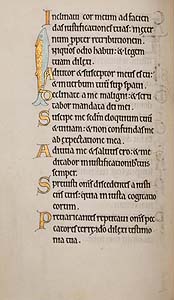 Inclinaui cor meum ad facien
das iustificationes tuas: in eter
num propter retributionem.
Iniquos odio habui: & legem
tuam dilexi.
Adiutor & susceptor meus es tu:
& in uerbum tuū sup speraui.
Declinate a me maligni: & scru
tabor mandata dei mei.
Suscipe me scdm eloquium tuū
& uiuam: & non confundas me
ab expectatione mea.
Adiuua me & saluus ero: & me
ditabor in iustificationib; tuis
semper.
Spreuisti om̄s discedentes a iusti
ciis tuis: quia iniusta cogitatio
eorum.
Preuaricantes reputaui om̄s pec
catores terre: ideo dilexi testimo
nia tua.